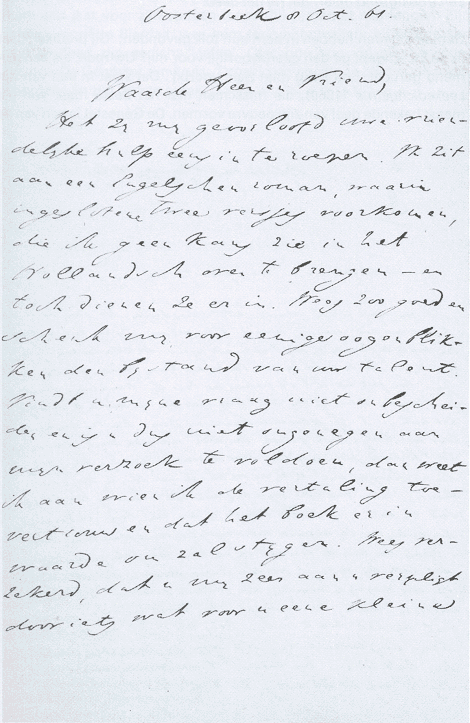 Oosterbeek 8 Oct. 61.
Waarde Heer en Vriend,
Het zij mij geoorloofd uwe vrien-
delijke hulp eens in te roepen. Ik zit
aan een Engelschen roman, waarin
ingeslotene twee versjes voorkomen,
die ik geen kans zie in het
Hollandsch over te brengen - en
toch dienen ze er in. Wees zoo goed en
schenk mij voor eenige oogenblik-
ken den bijstand van uw talent.
Vindt u mijne vraag niet onbeschei-
den en zijn dus niet ongenegen aan
mijn verzoek te voldoen, dan weet
ik aan wien ik de vertaling toe-
vertrouw en dat het boek er in
waarde om zal stijgen. Wees ver-
zekerd, dat u mij zeer aan u verpligt
door iets wat voor u eene kleine